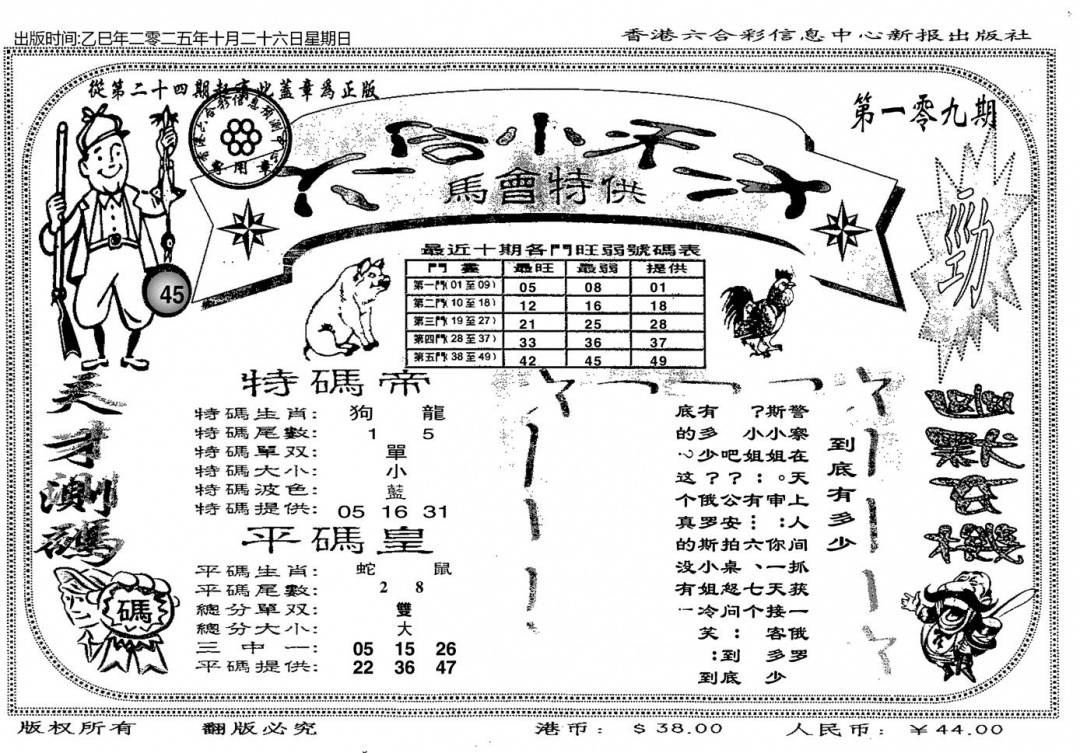 出版时间:乙巳年二零二五年十月二十六日星期日
香港六合彩信息中心新报出版社
從第二十四期起有此蓋章爲正版
第一零九期
專用章
馬會特供
勁
45
最近十期各門旺弱號碼表
門 最旺 最弱 提供
第一門(01至09) 05 08 01
第二門(10至18) 12 16 18
第三門(19至27) 21 25 28
第四門(28至37) 33 36 37
第五門(38至49) 42 45 49
天才測碼
特碼帝
特碼生肖: 狗 龍
特碼尾數: 1 5
特碼單双: 單
特碼大小: 小
特碼波色: 藍
特碼提供: 05 16 31
平碼皇
平碼生肖: 蛇 鼠
平碼尾數: 2 8
總分單双: 雙
總分大小: 大
三中一: 05 15 26
平碼提供: 22 36 47
碼
幽默玄機
到底有多少
警察在天上人间抓获一俄罗
斯小姐。审:你一天接客多少
?小姐:有…六、七个
吧?公安拍桌怒问:到底
有多少?俄罗斯小姐冷笑:到
底的?这个真的没有
版权所有 翻版必究 港币: $38.00 人民币: ￥44.00